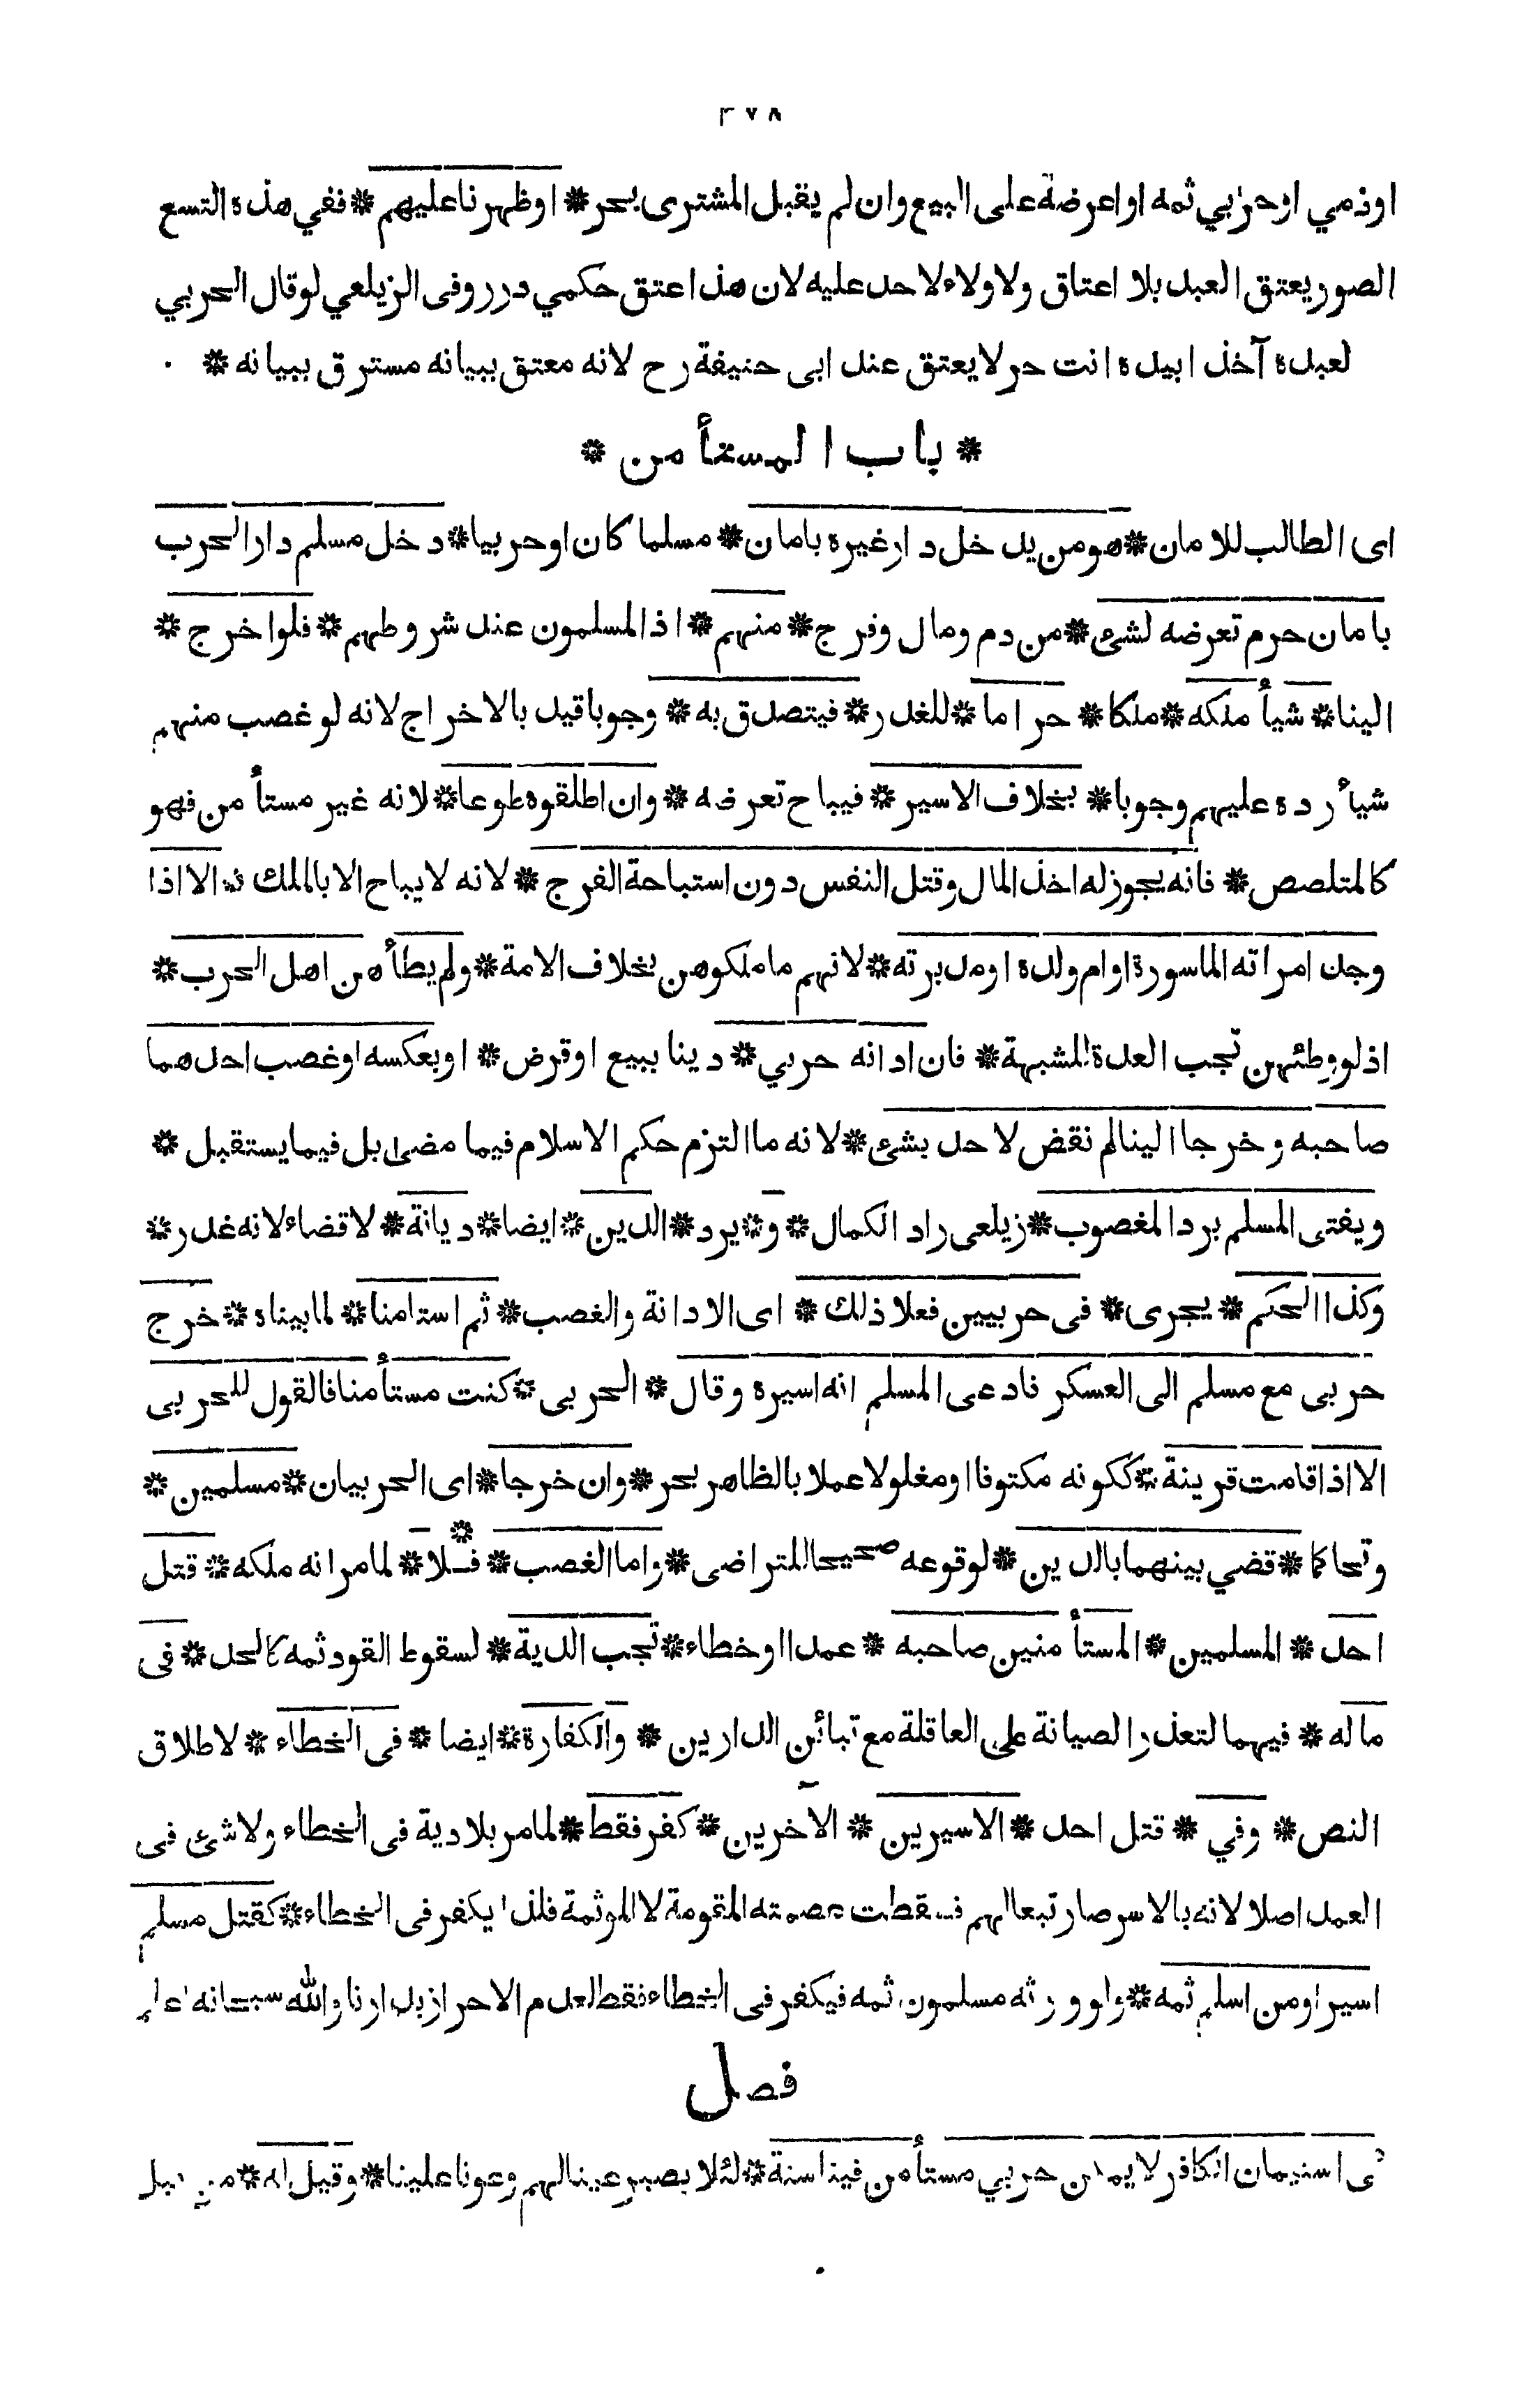 ٣٧٨
او ذمي او حربي ثمه او اعرضه على البيع وان لم يقبل المشترى بحر * او ظهرنا عليهم * ففي هذه التسع
الصور يعتق العبد بلا اعتاق ولا ولاء لاحد عليه لان هذا عتق حكمي درر وفى الزيلعي لو قال الحربي
لعبده آخذ ابيده انت حر لا يعتق عند ابى حنيفة رح لانه معتق ببيانه مسترق ببيانه *
* باب المستأمن *
اى الطالب للامان * هو من يدخل دار غيره بامان * مسلما كان او حربيا * دخل مسلم دار الحرب
بامان حرم تعرضه لشئ * من دم ومال وفرج * منهم * اذ المسلمون عند شروطهم * فلو اخرج *
الينا * شيأ ملكه * ملكا * حراما * للغدر * فيتصدق به * وجوبا قيد بالاخراج لانه لو غصب منهم
شيأ رده عليهم وجوبا * بخلاف الاسير * فيباح تعرضه * وان اطلقوه طوعا * لانه غير مستأمن فهو
كالمتلصص * فانه يجوز له اخذ المال وقتل النفس دون استباحة الفرج * لانه لا يباح الا بالملك * الا اذا
وجد امراته الماسورة او ام ولده او مدبرته * لانهم ما ملكوهن بخلاف الامة * ولم يطأهن اهل الحرب *
اذ لو وطئهن تجب العدة للشبهة * فان ادانه حربي * دينا ببيع او قرض * او بعكسه او غصب احدهما
صاحبه وخرجا الينا لم نقض لاحد بشئ * لانه ما التزم حكم الاسلام فيما مضى بل فيما يستقبل *
ويفتى المسلم برد المغصوب * زيلعى زاد الكمال * و * يرد * الدين * ايضا * ديانة * لا قضاء لانه غدر *
وكذا الحكم * يجرى * فى حربيين فعلا ذلك * اى الادانة والغصب * ثم استامنا * لما بيناه * خرج
حربى مع مسلم الى العسكر فادعى المسلم انه اسيره وقال * الحربى * كنت مستأمنا فالقول للحربى
الا اذا قامت قرينة * ككونه مكتوفا او مغلولا عملا بالظاهر بحر * وان خرجا * اى الحربيان * مسلمين *
وتحاكما * قضي بينهما بالدين * لوقوعه صحيحا للتراضى * واما الغصب * فلا * لما مر انه ملكه * قتل
احد * المسلمين * المستأمنين صاحبه * عمدا او خطاء * تجب الدية * لسقوط القود ثمه كالحد * فى
ماله * فيهما لتعذر الصيانة على العاقلة مع تبائن الدارين * والكفارة * ايضا * فى الخطاء * لاطلاق
النص * وفي * قتل احد * الاسيرين * الآخرين * كفر فقط * لما مر بلا دية فى الخطاء ولا شئ فى
العمد اصلا لانه بالاسر صار تبعا لهم فسقطت عصمته المقومة لا المؤثمة فلذا يكفر فى الخطاء * كقتل مسلم
اسيرا ومن اسلم ثمه * ولو ورثه مسلمون ثمه فيكفر فى الخطاء فقط لعدم الاحراز بدارنا والله سبحانه اعلم
فصل
استيمان الكافر لا يمكن حربي مستأمن فينا سنة * لئلا يصير عينا لهم وعونا علينا * وقيل له * من قبل